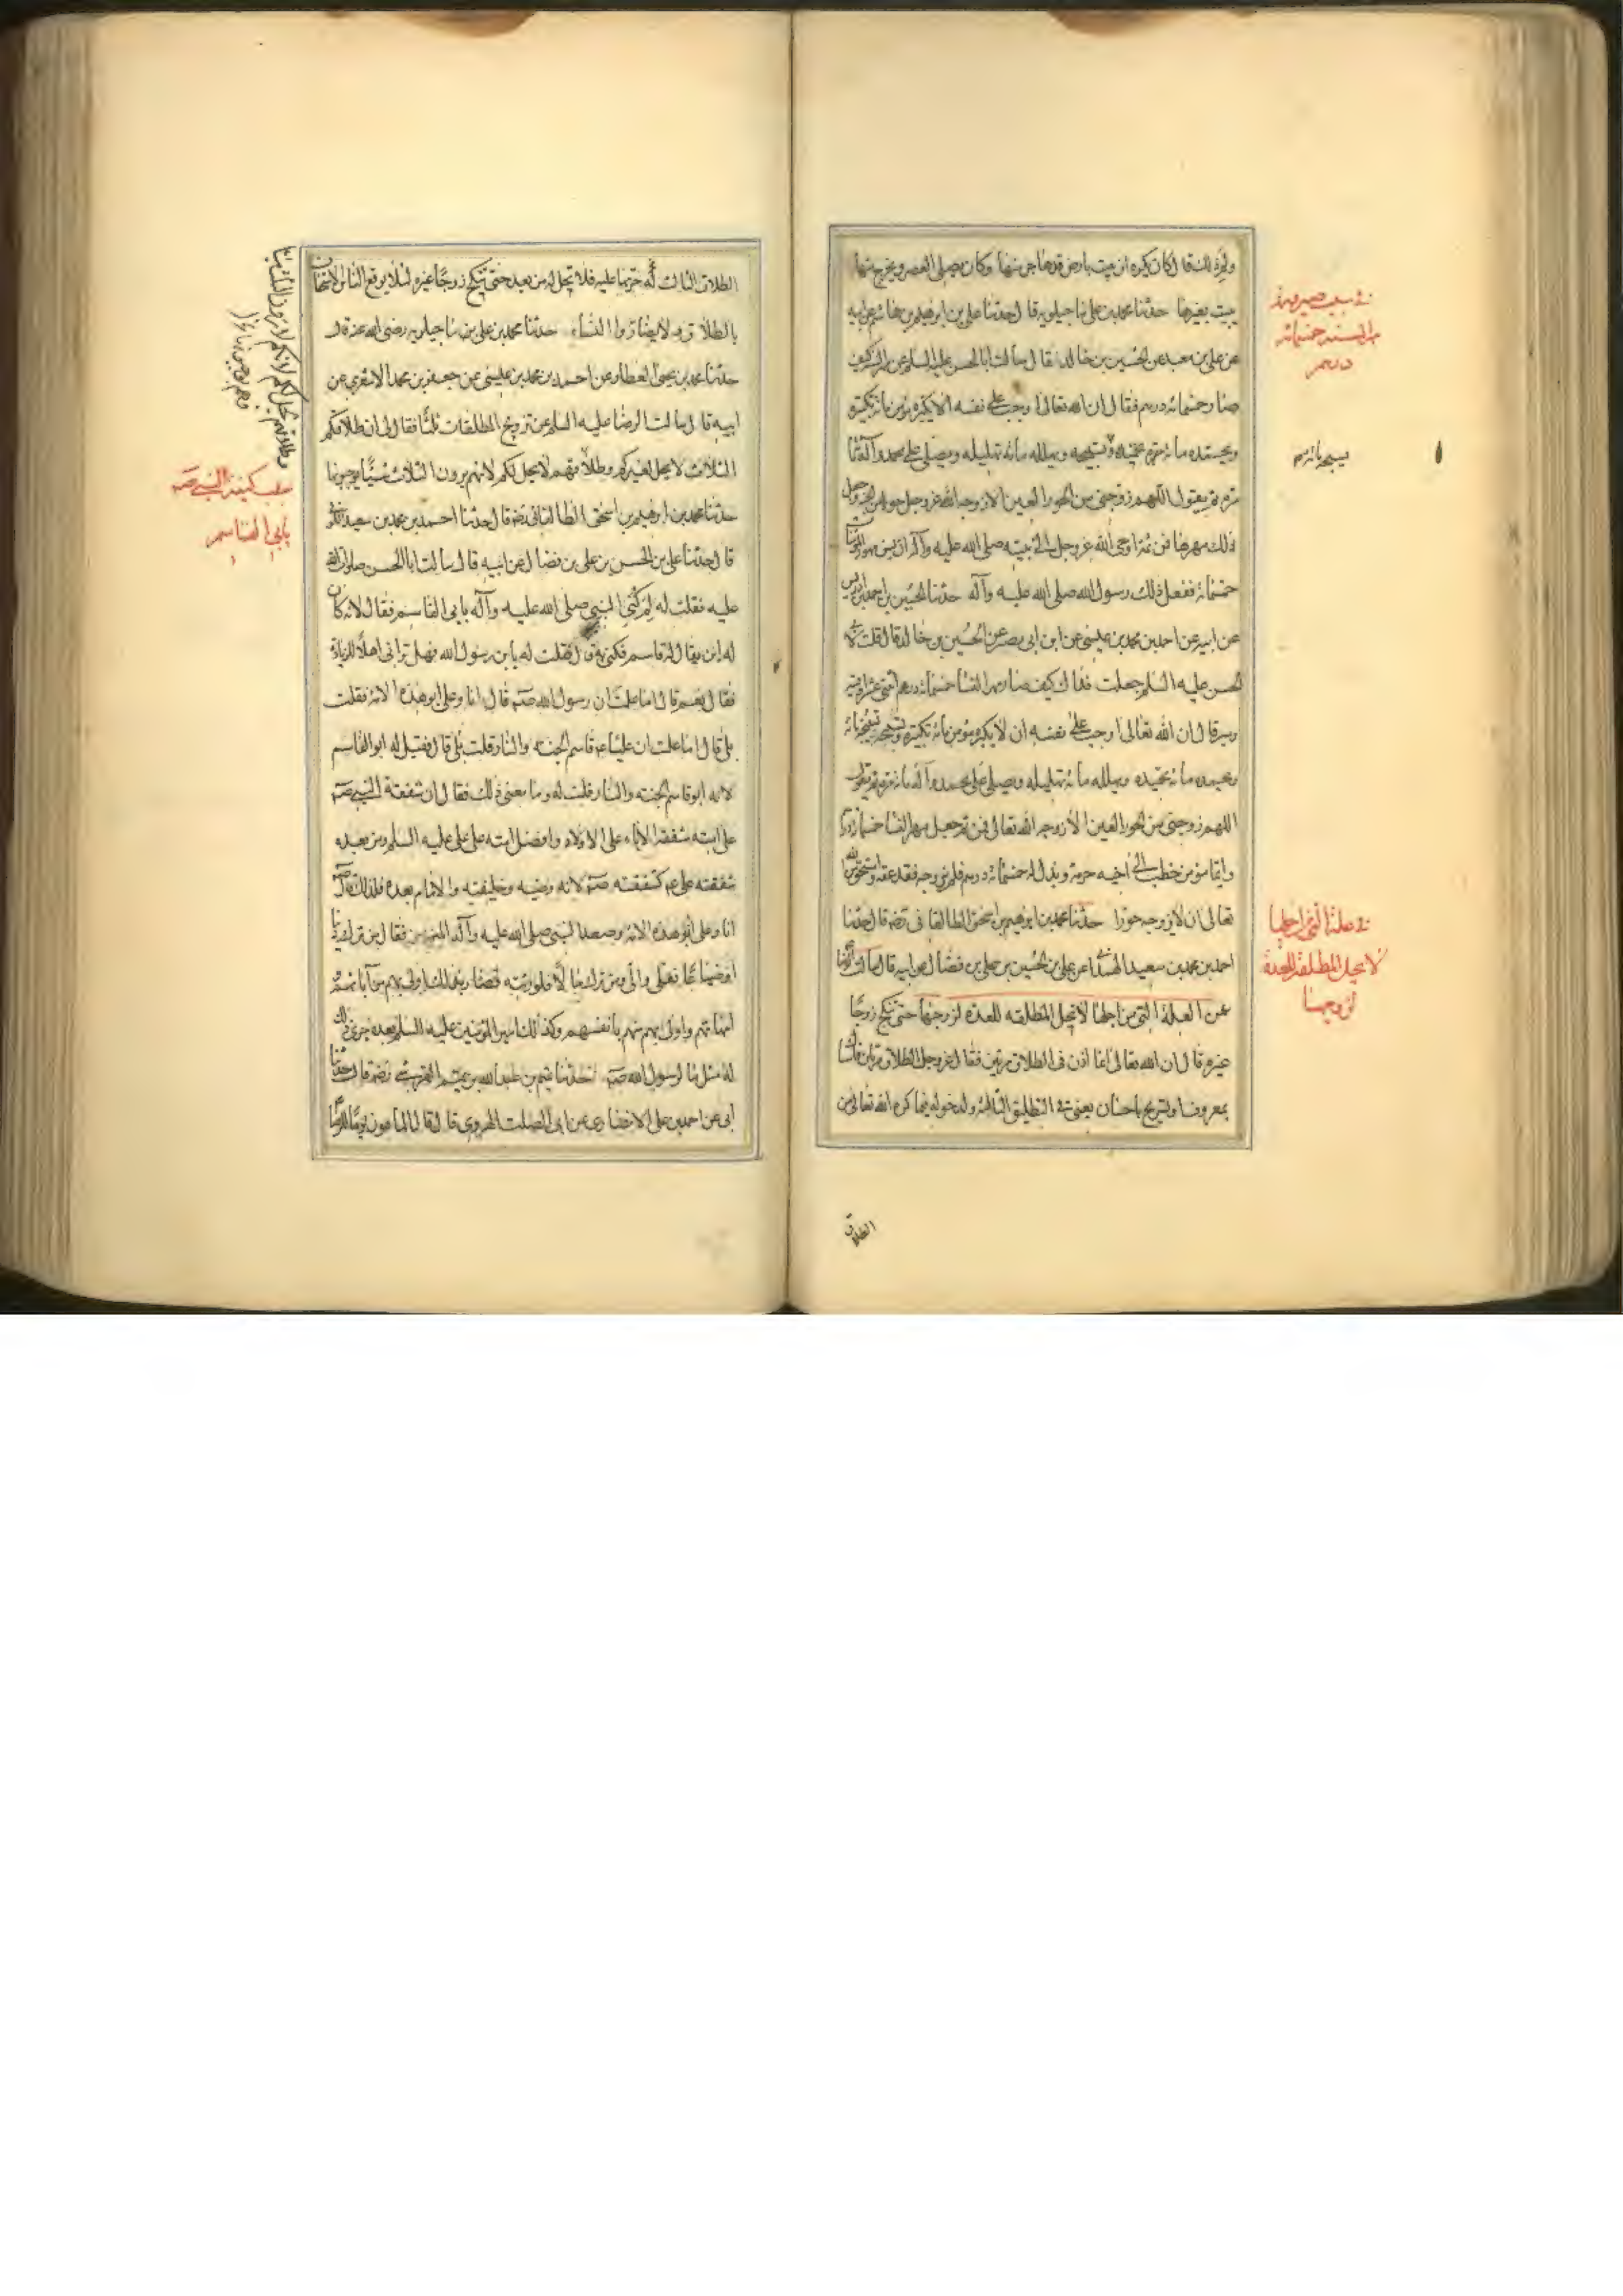 ولم ذلك قال كان يكره ان يبيت بارض قد هاجر منها وكان يصلى العصر ويخرج منها
يبيت بغيرها حدثنا محمد بن على ماجيلويه قال حدثنا على بن ابرهيم بن هاشم عن ابيه
عن على بن معبد عن الحسين بن خالد قال سالت ابا الحسن عليه السلم عن مهر السنة كيف
صار خمسمائة درهم فقال ان الله تعالى اوجب على نفسه الا يكبره مؤمن مائة تكبيرة
ويحمده مائة تحميدة ويهلله مائة تهليلة ويصلى على محمد وآله مائة
مرة ثم يقول اللهم زوجنى من الحور العين الا زوجه الله عز وجل حوراء من الجنة وجعل
ذلك مهرها فمن ثم اوحى الله عز وجل الى نبيه صلى الله عليه وآله ان يسن مهور المؤمنات
خمسمائة ففعل ذلك رسول الله صلى الله عليه وآله حدثنا الحسين بن احمد بن ادريس
عن ابيه عن احمد بن محمد بن عيسى عن ابن ابى نصر عن الحسين بن خالد قال قلت لابى
الحسن عليه السلم جعلت فداك كيف صار مهر النسا خمسمائة درهم اثنى عشر اوقية
قال ان الله تعالى اوجب على نفسه ان لا يكبره مؤمن مائة تكبيرة ويسبحه تسبيحة مائة
ويحمده مائة تحميدة ويهلله مائة تهليلة ويصلى على محمد وآله مائة مرة ثم يقول
اللهم زوجنى من الحور العين الا زوجه الله تعالى فمن ثم جعل مهر النسا خمسمائة درهم
وايما مؤمن خطب الى اخيه حرمة وبذل له خمسمائة درهم فلم يزوجه فقد عقه واستحق من الله
تعالى ان لا يزوجه حورا حدثنا محمد بن ابرهيم بن اسحق الطالقانى رضه قال حدثنا
احمد بن محمد بن سعيد الهمدانى عن على بن الحسين بن على بن فضال عن ابيه قال سالت الرضا
عن العلة التى من اجلها لا تحل المطلقه للعدة لزوجها حتى تنكح زوجا
غيره قال ان الله تعالى انما اذن فى الطلاق مرتين فقال عز وجل الطلاق مرتان فامساك
بمعروف او تسريح باحسان يعنى فى التطليق الثالثة ولدخوله فيما كره الله تعالى من
الطلاق
فى سبب صيرورة
مهر السنه خمسمائه
درهم
فى علة التى اجلها
لا يحل المطلقة للعدة
لزوجها
الطلاق الثالث حرمها عليه فلا تحل له من بعد حتى تنكح زوجا غيره لئلا يوقع الناس الاستخفاف
بالطلاق ولا يضاروا النساء حدثنا محمد بن على ماجيلويه رضى الله عنه قال
حدثنا محمد بن يحيى العطار عن احمد بن محمد بن عيسى عن جعفر بن محمد الاشعرى عن
ابيه قال سالت الرضا عليه السلم عن تزويج المطلقات ثلثا فقال لى ان طلاقكم
الثلاث لا يحل لغيركم وطلاقهم لا يحل لكم لانهم يرون الثلاث شيئا يوجبونها
حدثنا محمد بن ابرهيم بن اسحق الطالقانى رضه قال حدثنا احمد بن محمد بن سعيد
قال حدثنا على بن الحسن بن على بن فضال عن ابيه قال سالت ابا الحسن صلوات الله
عليه فقلت له لم كنى النبى صلى الله عليه وآله بابى القاسم فقال لانه كان
له ابن يقال له قاسم فكنى به قال فقلت له يابن رسول الله فهل ترانى اهلا للزيادة
فقال نعم قال اما علمت ان رسول الله صه قال انا وعلى ابو هذه الامة فقلت
بلى قال اما علمت ان عليا ع قاسم الجنة والنار قلت بلى قال فقيل له ابو القاسم
لانه ابو قاسم الجنة والنار فقلت له وما معنى ذلك فقال ان شفقة النبى صه
على امته شفقة الاباء على الاولاد وافضل امته على على عليه السلم ومن بعده
شفقته على ع كشفقته صه لانه وصيه وخليفته والامام بعده فلذلك قال
انا وعلى ابو هذه الامة وصعد النبى صلى الله عليه وآله المنبر فقال من ترك دينا
او ضياعا فعلى والى ومن ترك مالا فلورثته فصار بذلك اولى بهم من آبائهم
امهاتهم واولى بهم منهم بانفسهم وكذلك امير المؤمنين عليه السلم بعده جرى ذلك
له مثل ما لرسول الله صه حدثنا تميم بن عبد الله بن تميم القرشى رضه قال حدثنا
ابى عن احمد بن على الانصارى عن ابى الصلت الهروى قال قال المامون يوما للرضا
سبب كنية النبى صه
بابى القاسم